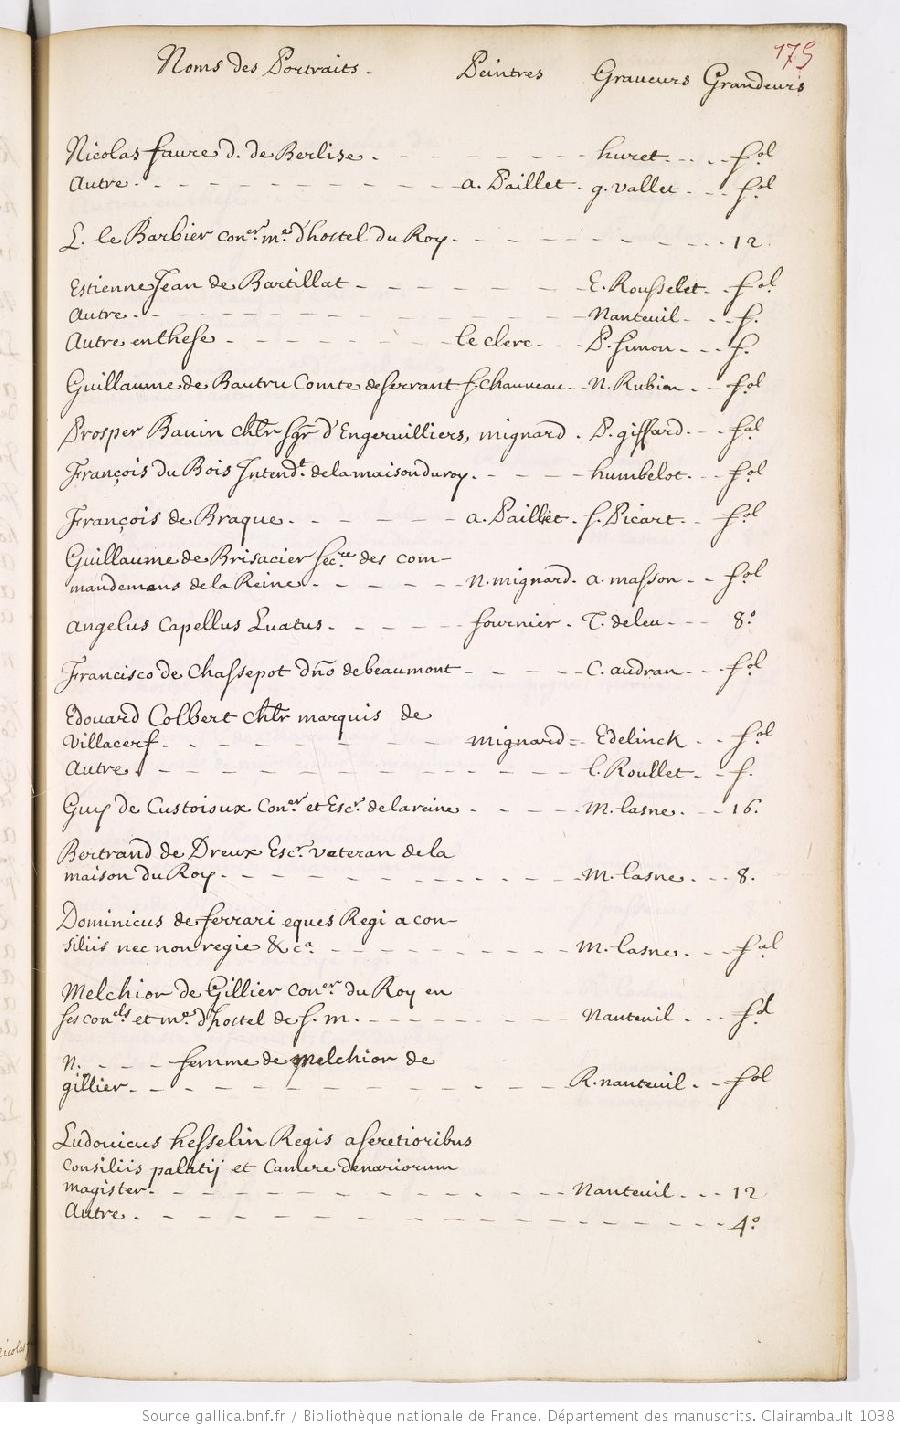 175
Noms des Portraits. Peintres Graveurs Grandeurs
Nicolas faure d. de Berlise. huret. fol
Autre. a. Paillet. g. vallet. fol
L. le Barbier coner. me. d'hostel du Roy. 12.
Estienne Jean de Bartillat E. Rousselet. fol
Autre. Nanteuil. f.
Autre en these le clerc. P. simon. f.
Guillaume de Bautru Comte de serrant f. chauveau N. Rubien. fol
Prosper Bauin chlr sgr d'Engervilliers, mignard. P. giffard. fol
François du Bois Intendt. de la maison du roy. humbelot. fol
François de Braque. a. Paillet. f. Picart. fol
Guillaume de Brisacier secre des com-
mandemens de la Reine. N. mignard. a. masson. fol
Angelus Capellus Luatus. fournier. T. deleu. 8o
Francisco de Chassepot dno de beaumont C. audran. fol
Edouard Colbert chlr marquis de
Villacerf. mignard Edelinck. fol
Autre. l. Roullet. f.
Guy de Custoioux coner. et Escr. de la reine M. lasne. 16.
Bertrand de Dreux Escr. veteran de la
maison du Roy. M. lasne. 8.
Dominicus de ferrari eques Regi a con-
siliis nec non regie &ca M. lasne. fol
Melchior de Gillier coner du Roy en
ses conels et me d'hostel de s. m. Nanteuil. fol
N. femme de Melchior de
gillier. R. nanteuil. fol
Ludovicus hesselin Regis a secretioribus
Consiliis palatij et Camere denariorum
magister. Nanteuil. 12
Autre. 4o
Source gallica.bnf.fr / Bibliothèque nationale de France. Département des manuscrits. Clairambault 1038